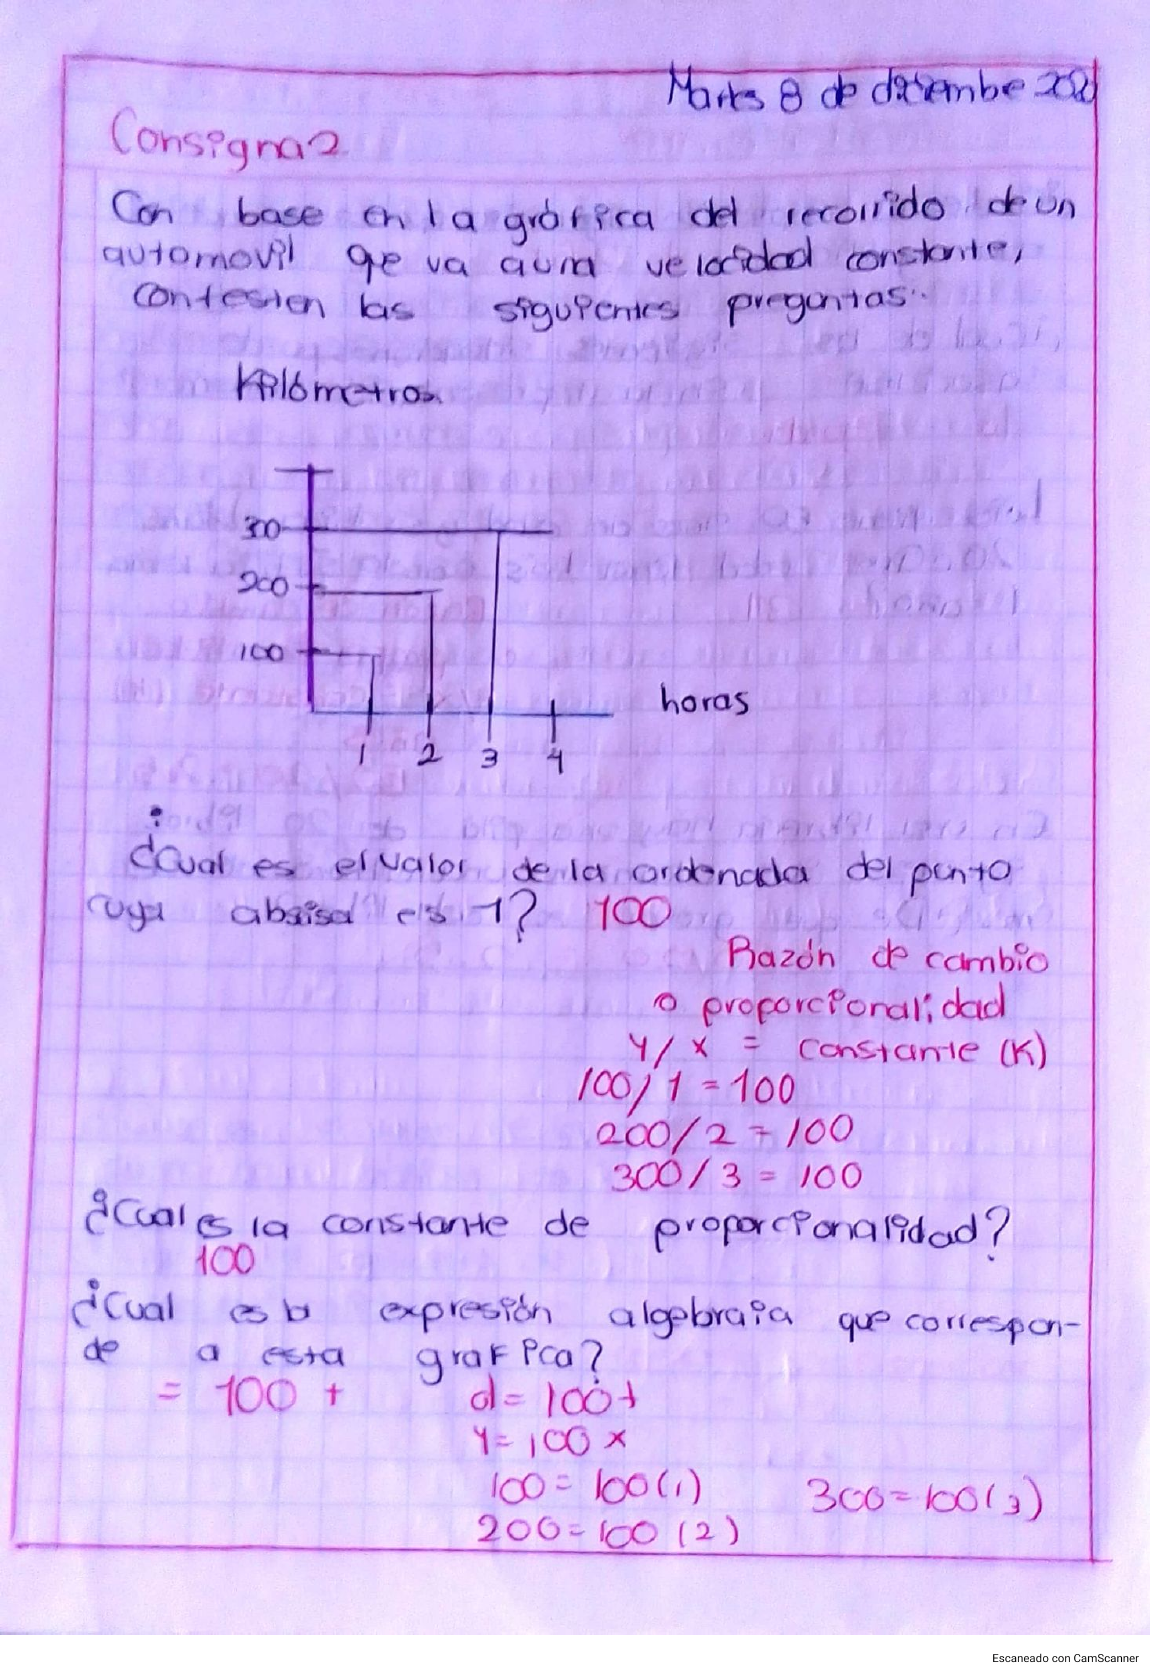 Martes 8 de diciembre 2020
Consigna 2
Con base en la gráfica del recorrido de un
automovil que va auna velocidad constante,
contesten las siguientes preguntas:
Kilómetros
300
200
100
horas
1 2 3 4
¿Cual es el valor de la ordenada del punto
cuya absisa es 1? 100
Razón de cambio
o proporcionalidad
y/x = constante (K)
100/1 = 100
200/2 = 100
300/3 = 100
¿Cual es la constante de proporcionalidad?
100
¿Cual es la expresión algebraia que correspon-
de a esta grafica?
= 100 t d= 100t
y= 100 x
100 = 100(1) 300=100(3)
200=100 (2)
Escaneado con CamScanner